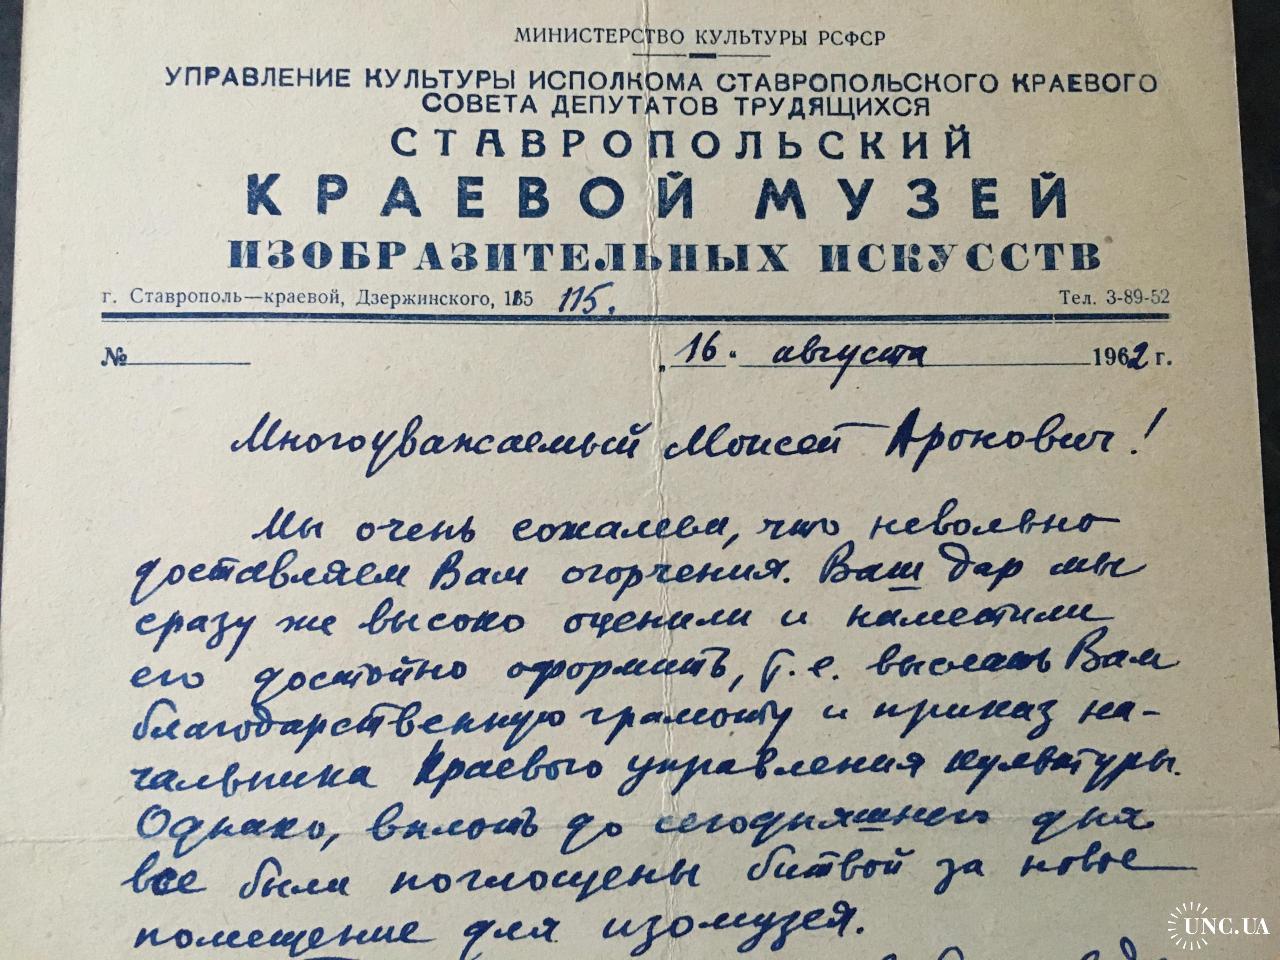 МИНИСТЕРСТВО КУЛЬТУРЫ РСФСР
УПРАВЛЕНИЕ КУЛЬТУРЫ ИСПОЛКОМА СТАВРОПОЛЬСКОГО КРАЕВОГО
СОВЕТА ДЕПУТАТОВ ТРУДЯЩИХСЯ
СТАВРОПОЛЬСКИЙ
КРАЕВОЙ МУЗЕЙ
ИЗОБРАЗИТЕЛЬНЫХ ИСКУССТВ
г. Ставрополь—краевой, Дзержинского, 115 115. Тел. 3-89-52
№ „16" августа 1962 г.
Многоуважаемый Моисей Аронович!
Мы очень сожалеем, что невольно
доставляем Вам огорчения. Ваш дар мы
сразу же высоко оценили и наметили
его достойно оформить, т.е. выслать Вам
благодарственную грамоту и приказ на-
чальника Краевого управления культуры.
Однако, вплоть до сегодняшнего дня
все были поглощены битвой за новое
помещение для изомузея.
UNC.UA